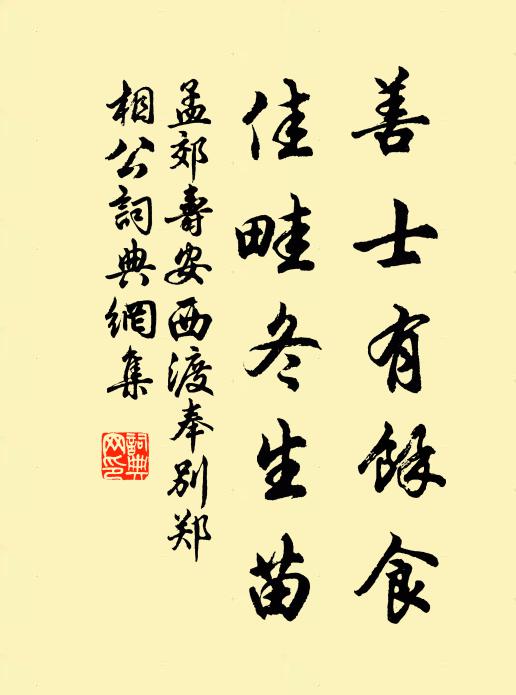 善士有餘食
佳畦冬生苗
孟郊壽安西渡奉別郑
相公詞典網集
詞典网印